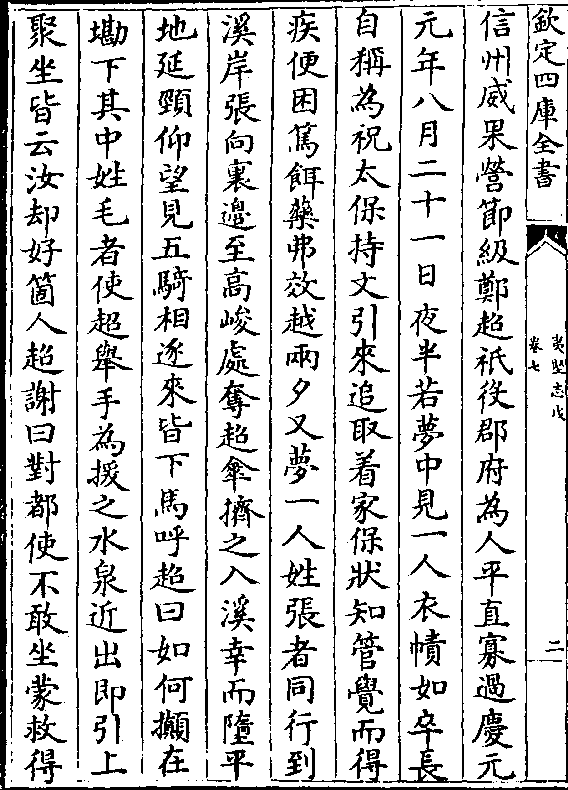 欽定四庫全書
夷堅志戊
卷七
二
信州威果營節級鄭超祇役郡府為人平直寡過慶元
元年八月二十一日夜半若夢中見一人衣幘如卒長
自稱為祝太保持文引來追取着家保狀知管覺而得
疾便困篤餌藥弗效越兩夕又夢一人姓張者同行到
溪岸張向裏邊至高峻處奪超傘擠之入溪幸而墮平
地延頸仰望見五騎相逐來皆下馬呼超曰如何攧在
墈下其中姓毛者使超舉手為援之水泉近出即引上
聚坐皆云汝却好箇人超謝曰對都使不敢坐蒙救得